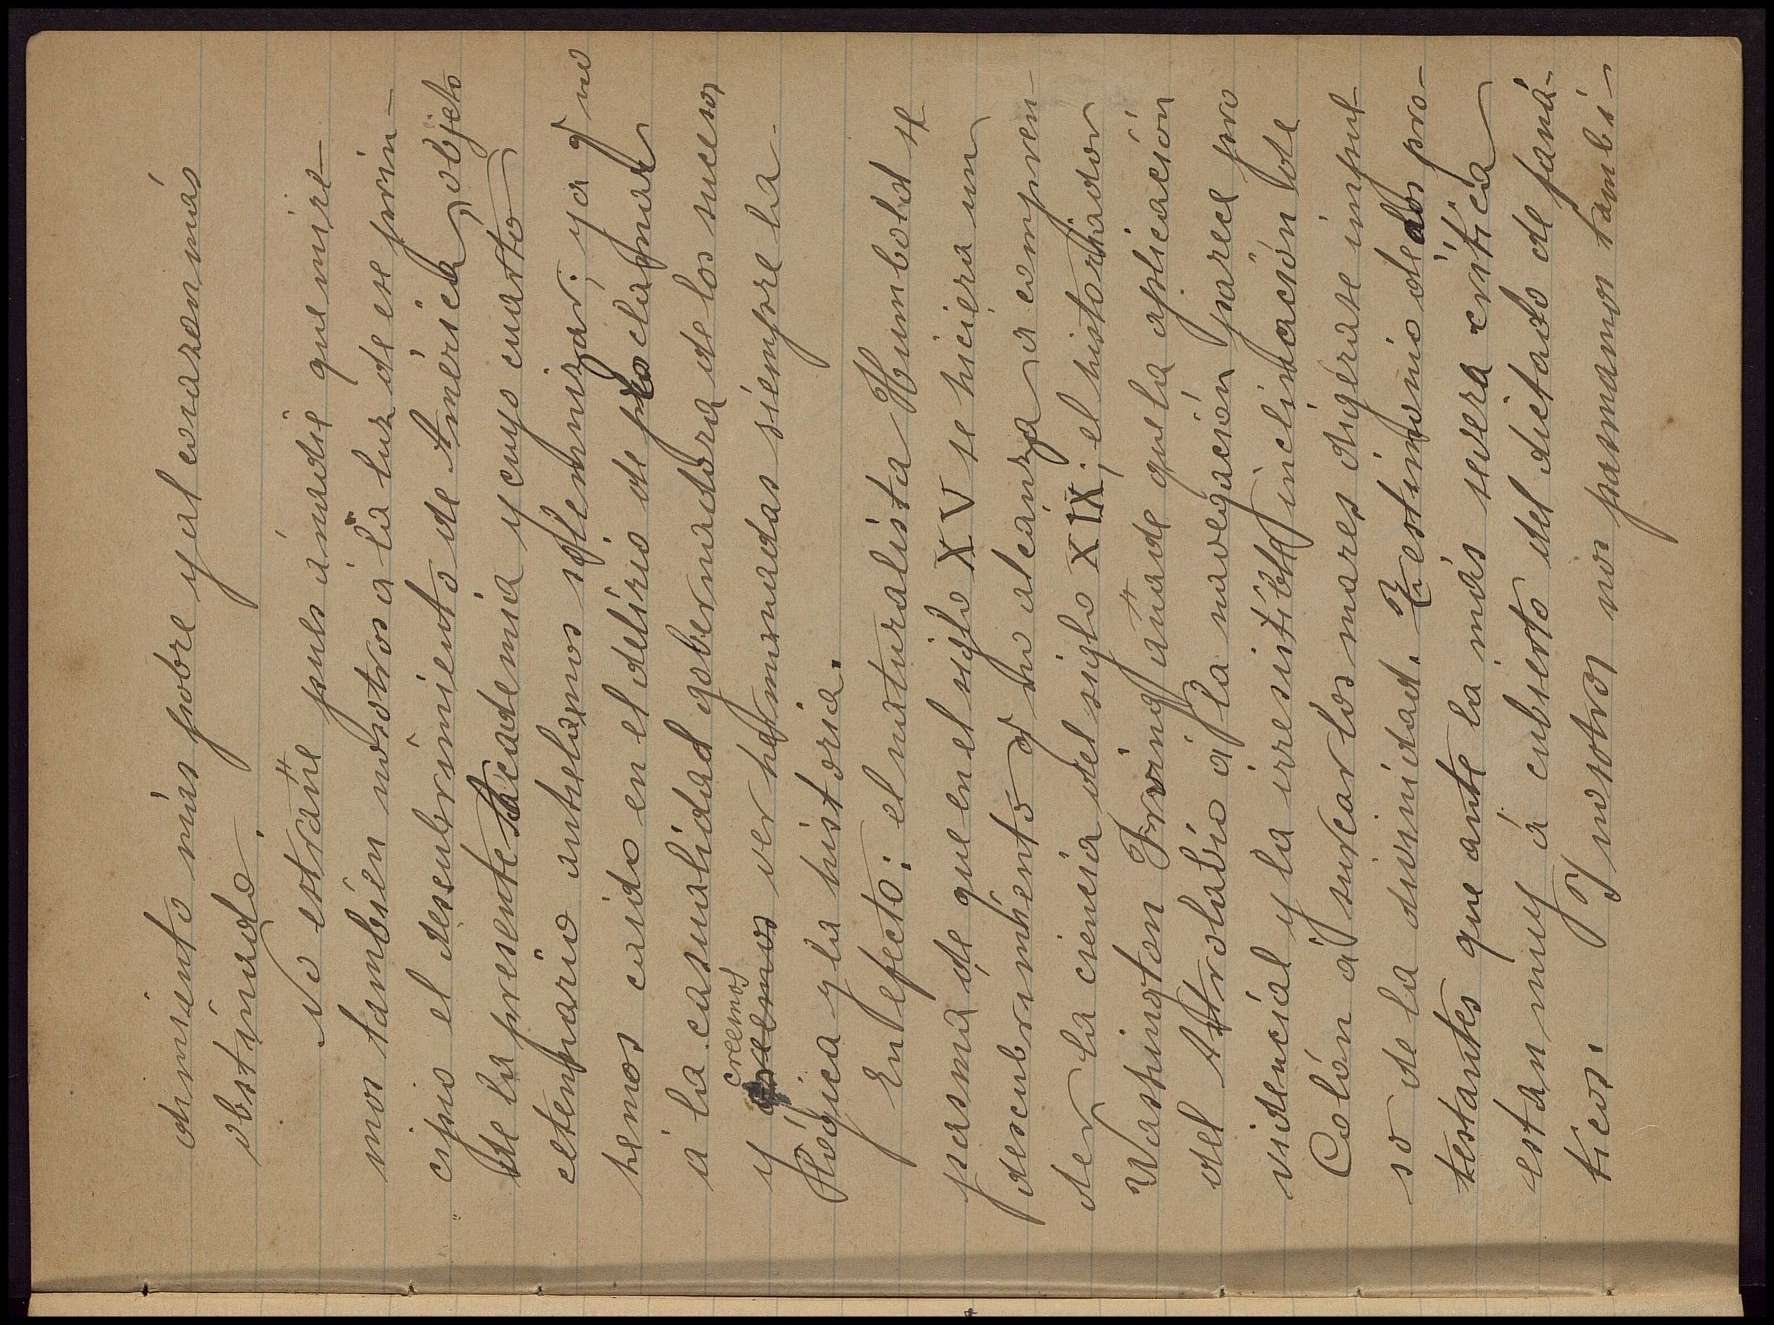 dimiento más pobre y al corazon más
obstinado.
No estrañe pues á nadie que mire-
mos también nosotros a la luz de ese prin-
cipio el descubrimiento de América, objeto
de la presente Academia y cuyo cuarto
centenario anhelamos solemnizar; ya q no
hemos caido en el delirio de proclamar
a la casualidad gobernadora de los sucesos
y creemos ver hermanadas siempre la
lógica y la historia.
En efecto: el naturalista Humboldt se
pasma de que en el siglo XV se hiciera un
descubrimiento q no alcanza a compren-
der la ciencia del siglo XIX; el historiador
Washington Irving añade que la aplicación
del Astrolabio á la navegación parece pro
videncial y la irresistible inclinación de
Colón á surcar los mares dígerase impul
so de la divinidad. Testimonio de dos pro-
testantes que ante la más severa crítica
estan muy á cubierto del dictado de faná-
ticos. Y nosotros nos pasmamos tambi-